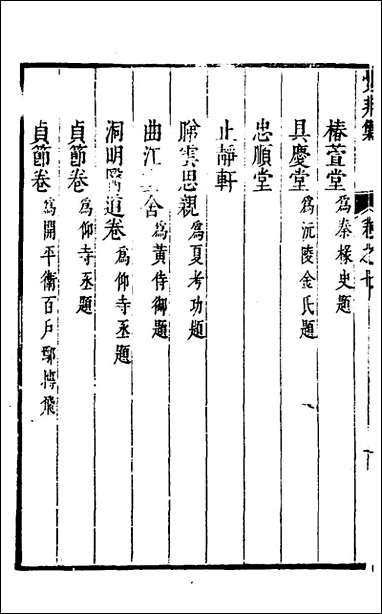 集 卷之十
椿萱堂 為秦掾史題
具慶堂 為沅陵金氏題
忠順堂
止靜軒
瞻雲思親 為夏考功題
曲江 舍 為黃侍御題
洞明醫道卷 為仰寺丞題
貞節卷 為仰寺丞題
貞節卷 為開平衛百戶鄢搏飛